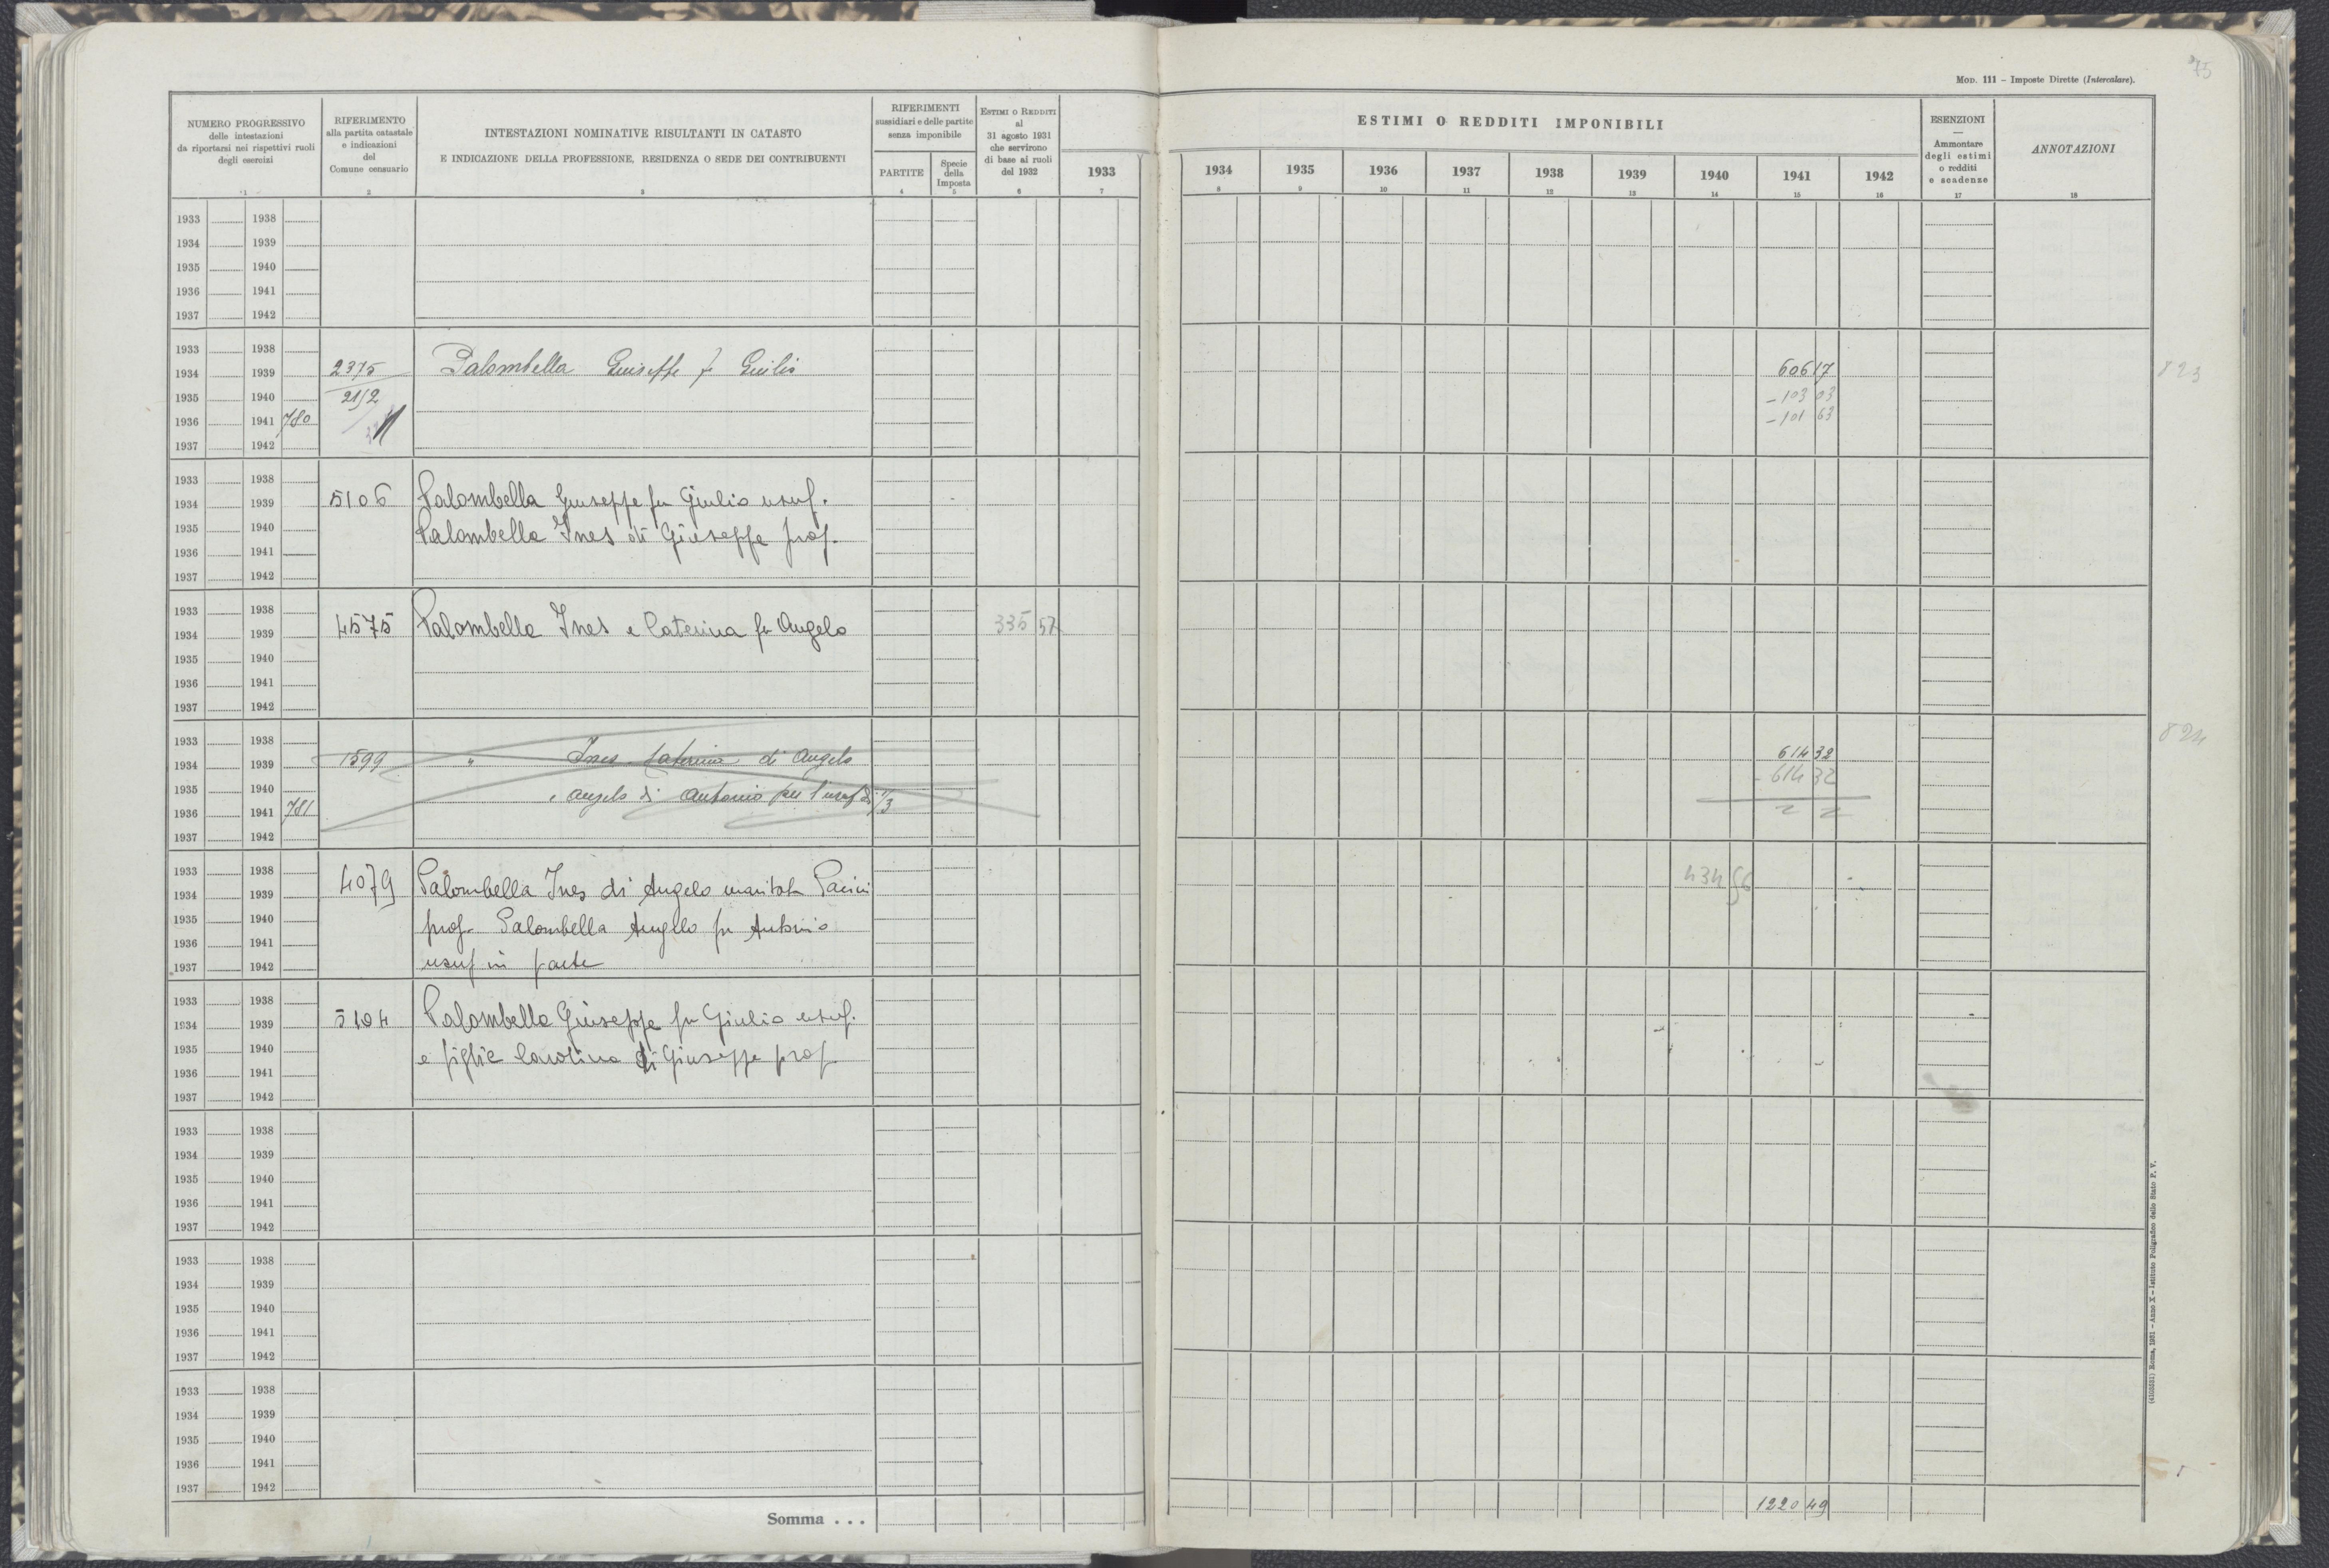 75
MOD. 111 – Imposte Dirette (Intercalare).
NUMERO PROGRESSIVO
delle intestazioni
da riportarsi nei rispettivi ruoli
degli esercizi
1
RIFERIMENTO
alla partita catastale
e indicazioni
del
Comune censuario
2
INTESTAZIONI NOMINATIVE RISULTANTI IN CATASTO
E INDICAZIONE DELLA PROFESSIONE, RESIDENZA O SEDE DEI CONTRIBUENTI
3
RIFERIMENTI
sussidiari e delle partite
senza imponibile
PARTITE
4
Specie
della
Imposta
5
ESTIMI O REDDITI
al
31 agosto 1931
che servirono
di base ai ruoli
del 1932
6
1933
7
ESTIMI O REDDITI IMPONIBILI
1934 1935 1936 1937 1938 1939 1940 1941 1942
8 9 10 11 12 13 14 15 16
ESENZIONI
—
Ammontare
degli estimi
o redditi
e scadenze
17
ANNOTAZIONI
18
1933 1938
1934 1939
1935 1940
1936 1941
1937 1942
1933 1938
1934 1939 2375 Palombella Giuseppe fu Giulio 606 17 823
1935 1940 2152 – 103 03
1936 1941 780 – 101 63
1937 1942
1933 1938
1934 1939 5106 Palombella Giuseppe fu Giulio usuf.
1935 1940 Palombella Ines di Giuseppe prop.
1936 1941
1937 1942
1933 1938
1934 1939 4575 Palombella Ines e Caterina fu Angelo 335 57
1935 1940
1936 1941
1937 1942
1933 1938 824
1934 1939 1599 " Ines Caterina di Angelo 614 32
1935 1940 e Angelo di Antonio per l'usuf di 1/3 – 614 32
1936 1941 781
1937 1942
1933 1938
1934 1939 4079 Palombella Ines di Angelo maritata Pacini 434 56
1935 1940 prop. Palombella Angelo fu Antonio
1936 1941
1937 1942 usuf in parte
1933 1938
1934 1939 5104 Palombella Giuseppe fu Giulio usuf.
1935 1940 e figlie Carolina di Giuseppe prop
1936 1941
1937 1942
1933 1938
1934 1939
1935 1940
1936 1941
1937 1942
1933 1938
1934 1939
1935 1940
1936 1941
1937 1942
1933 1938
1934 1939
1935 1940
1936 1941
1937 1942
Somma . . . 1220 49
(4103531) Roma, 1931 – Anno X – Istituto Poligrafico dello Stato P. V.